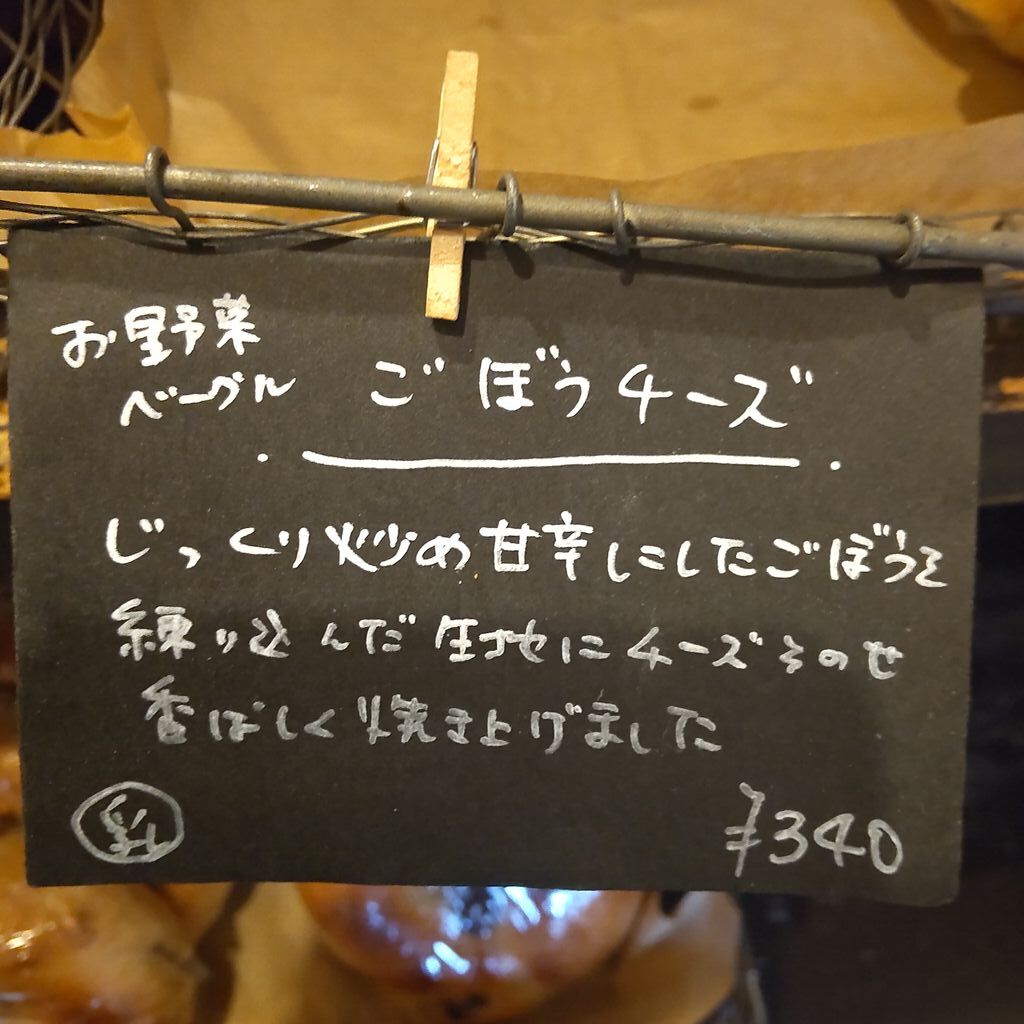 お野菜
ベーグル
ごぼうチーズ
じっくり炒め甘辛くにしたごぼうを
練り込んだ生地にチーズをのせ
香ばしく焼き上げました
乳
¥340